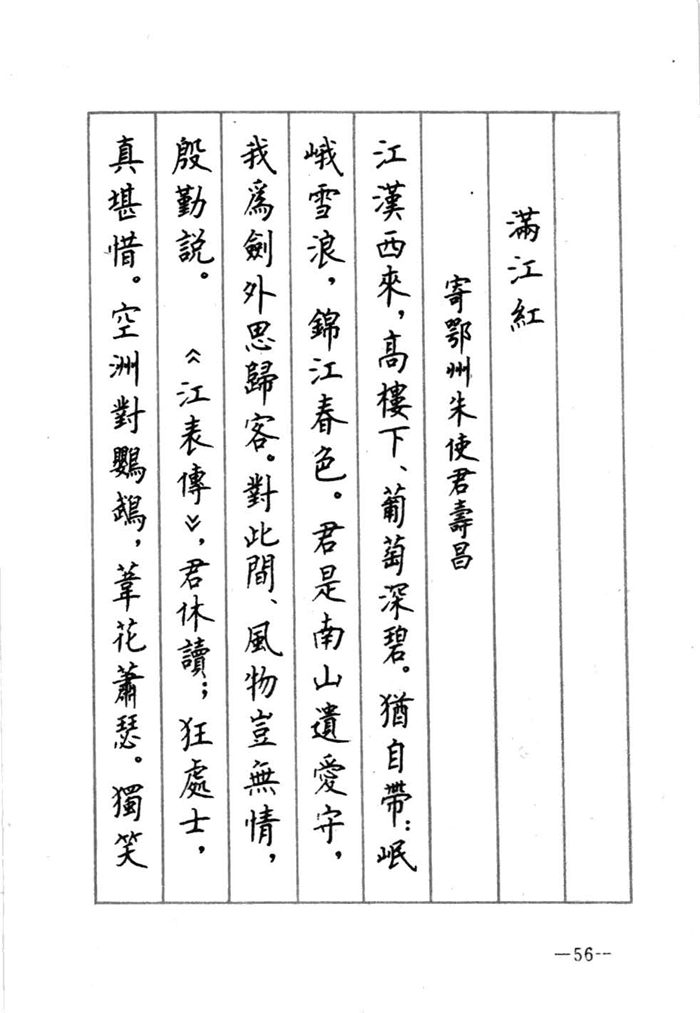 滿江紅
寄鄂州朱使君壽昌
江漢西來，高樓下、葡萄深碧。猶自帶：岷
峨雪浪，錦江春色。君是南山遺愛守，
我爲劍外思歸客。對此間、風物豈無情，
殷勤説。　《江表傳》，君休讀；狂處士，
真堪惜。空洲對鸚鵡，葦花蕭瑟。獨笑
—56--